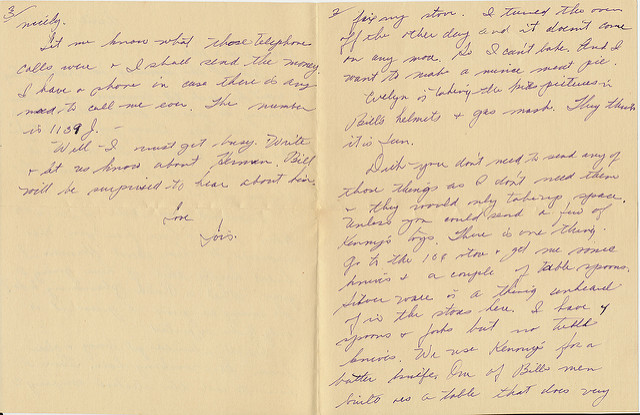 2
fix my stove. I turned the oven
off the other day and it doesn't come
on any more. So I can't bake. And I
want to make a mince meat pie.
Evelyn is taking the kids pictures in
Bills helmets + gas mask. They think
it is fun.
Dick - you don't need to send any of
those things as I don't need them
+ they would only take up space.
Unless you could send a few of
Kenny's toys. There is one thing.
Go to the 10¢ store + get me some
knives + a couple of table spoons.
Silver ware is a thing unheard
of in the stores here. I have 4
spoons + forks but no table
knives. We use Kenny's for a
butter knife. One of Bills men
built us a table that does very
3
nicely.
Let me know what those telephone
calls were + I shall send the money.
I have a phone in case there is any
need to call me ever. The number
is 1139 J. -
Well - I must get busy. Write
+ let us know about Herman. Bill
will be surprised to hear about him.
Love
Lois.